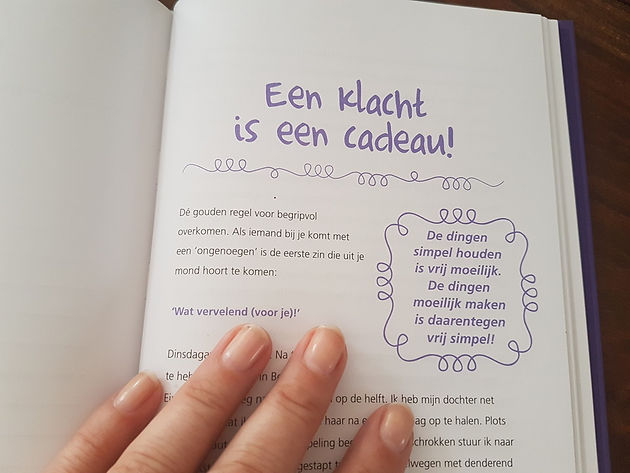 Een klacht
is een cadeau!
Dé gouden regel voor begripvol
overkomen. Als iemand bij je komt met
een 'ongenoegen' is de eerste zin die uit je
mond hoort te komen:
'Wat vervelend (voor je)!'
De dingen
simpel houden
is vrij moeilijk.
De dingen
moeilijk maken
is daarentegen
vrij simpel!
Na
te in
op de helft. Ik heb mijn dochter net
haar na op te halen. Plots
schrokken stuur ik naar
gestapt met denderend